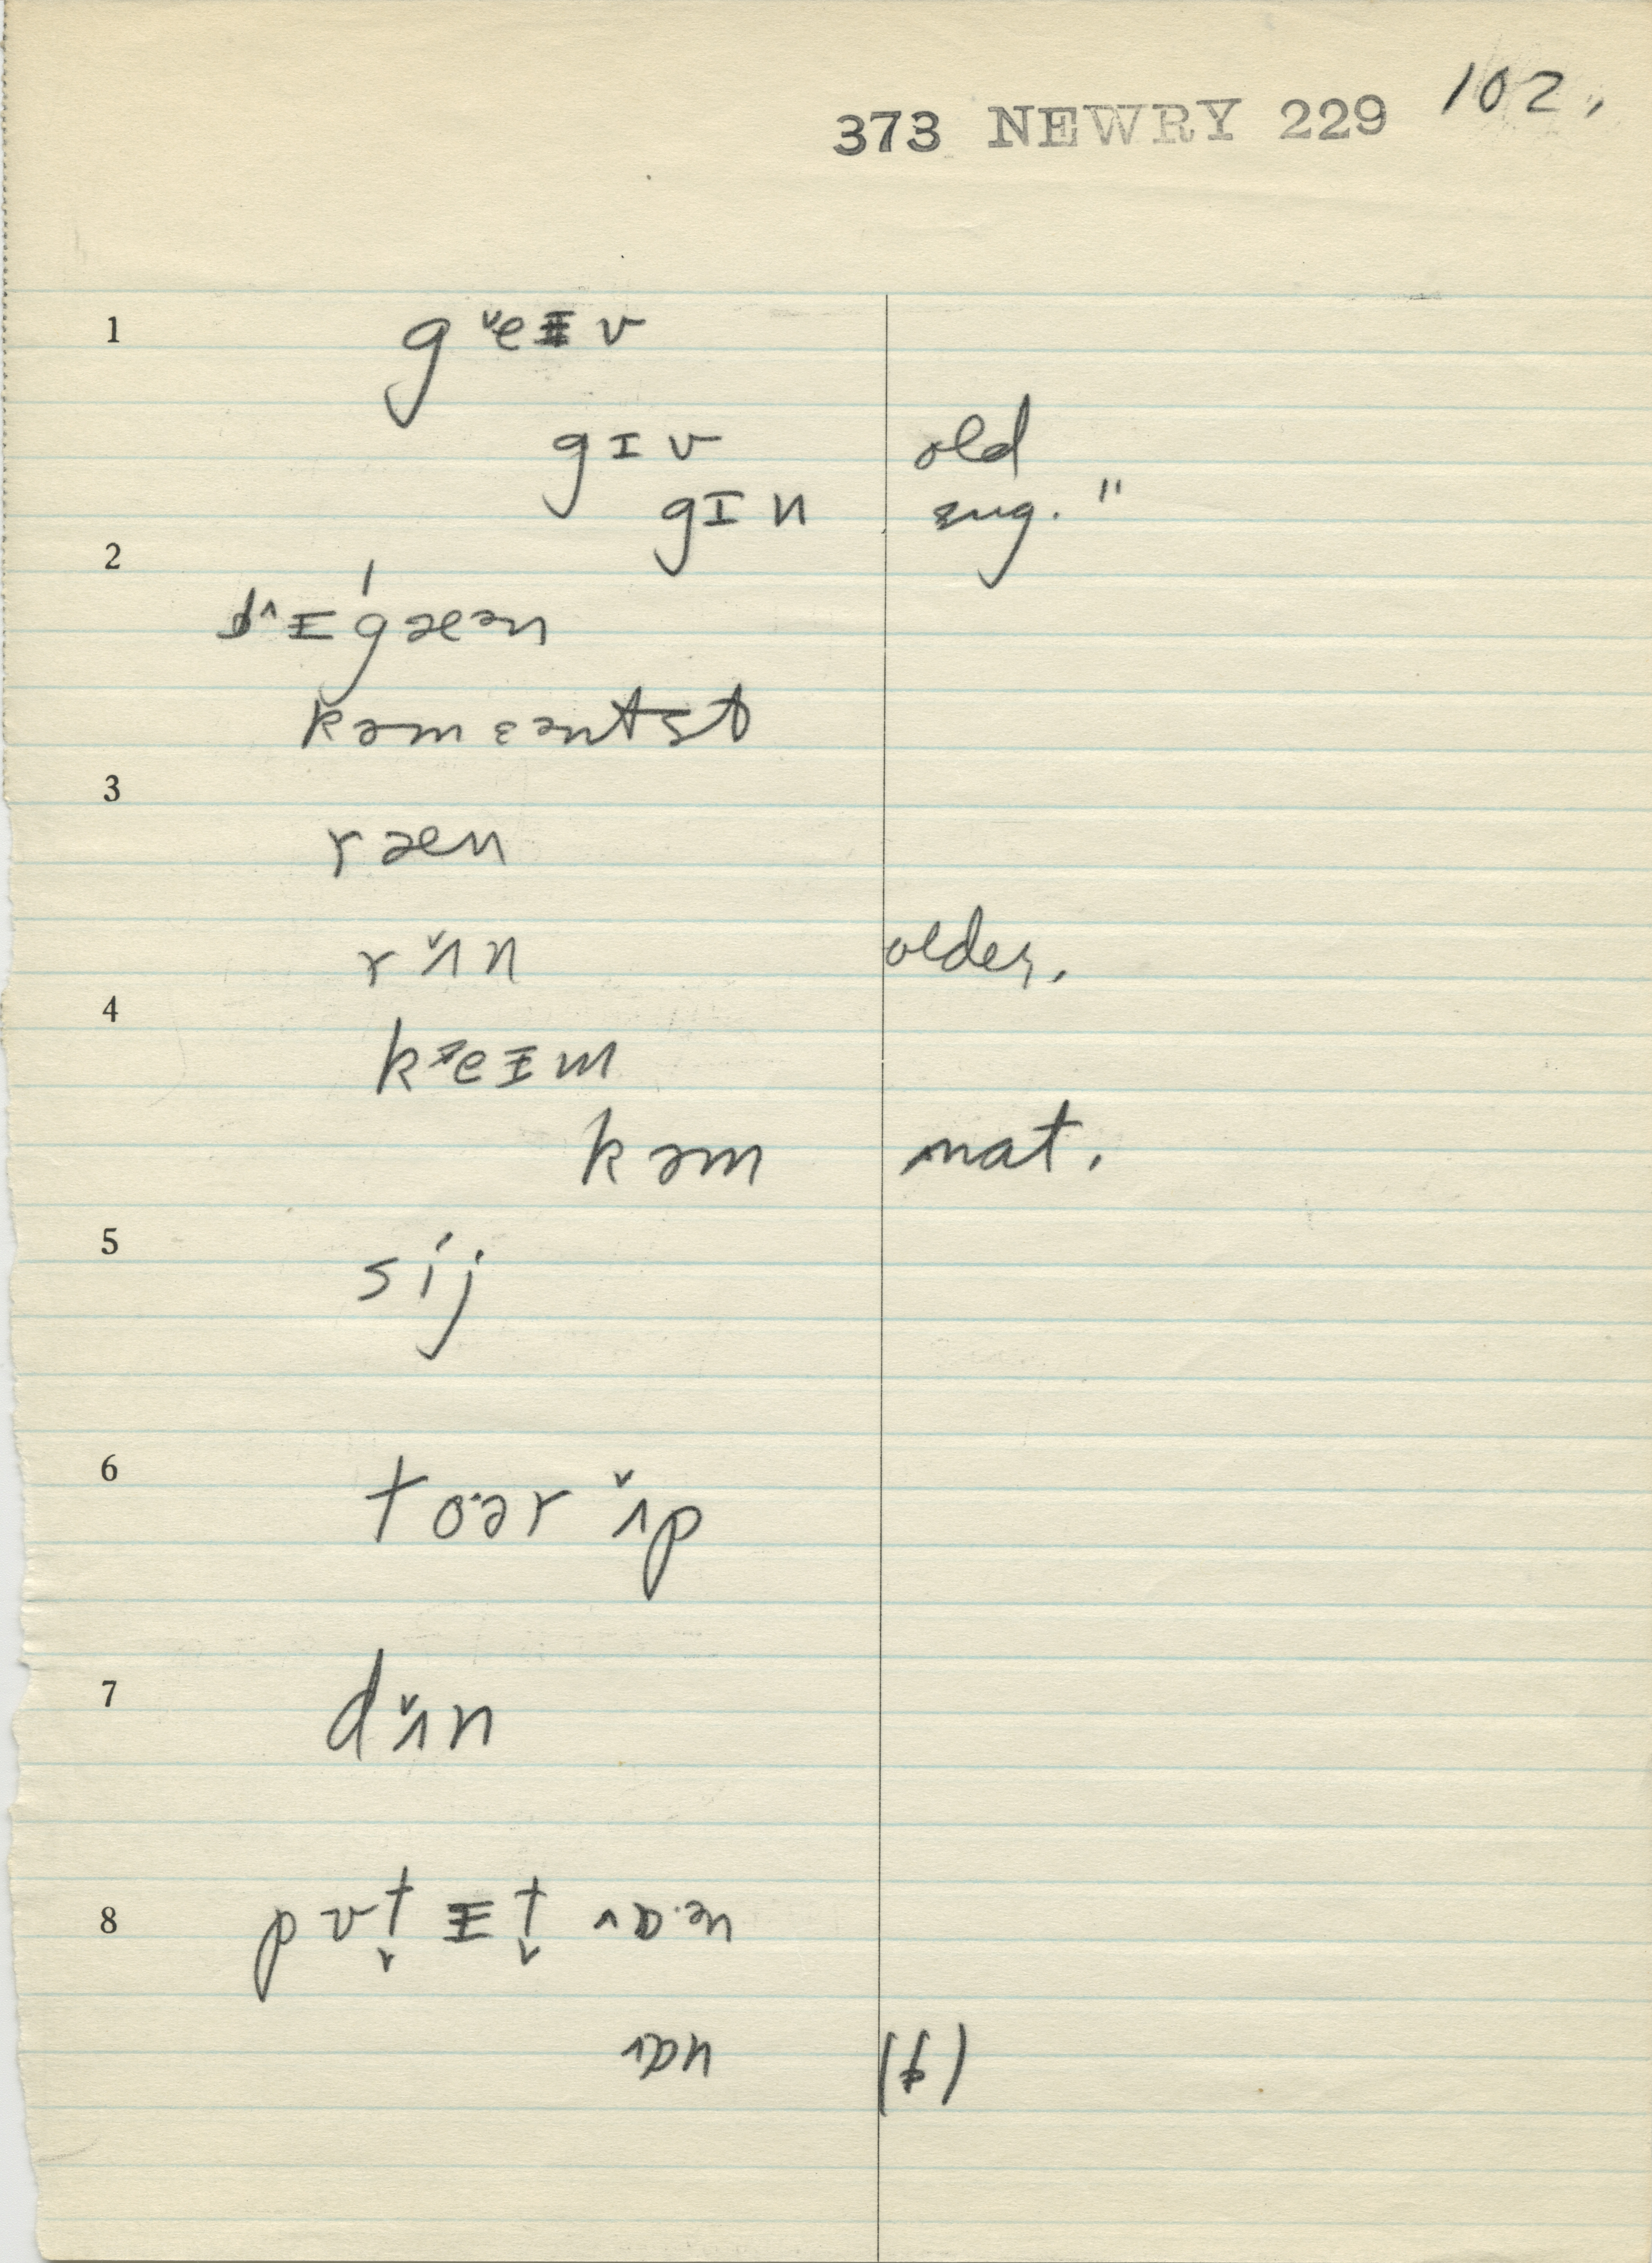 373 NEWRY 229 102.
1 g ˇeɪ v
gɪv old
gɪn sug. "
2
bˆɪˈgæən
kəmɛəntst
3
ræn
rˇʌn older.
4
kˇeɪm
kəm nat.
5 sij
6 to·ər ˇʌp
7 dˇʌn
8 pʊt̬ ɪt̬ ˄ɒ·ən
˄ɒn (f)